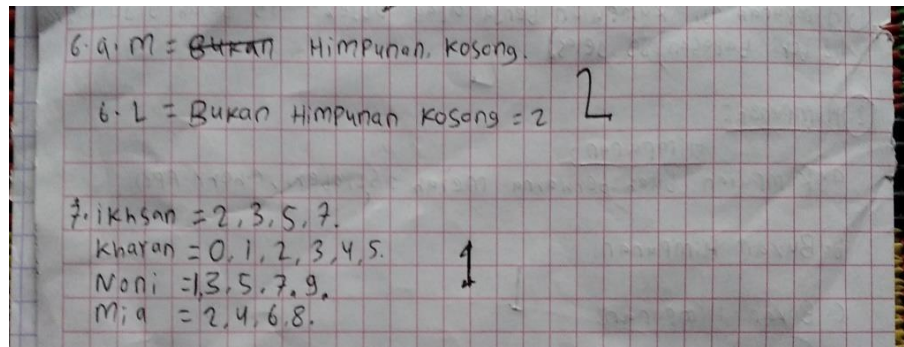 6. a. M = Bukan Himpunan Kosong.
6. L = Bukan Himpunan Kosong = 2
2
7. ikhsan = 2, 3, 5, 7.
Kharan = 0, 1, 2, 3, 4, 5.
1
Noni = 1, 3, 5, 7, 9.
Mia = 2, 4, 6, 8.